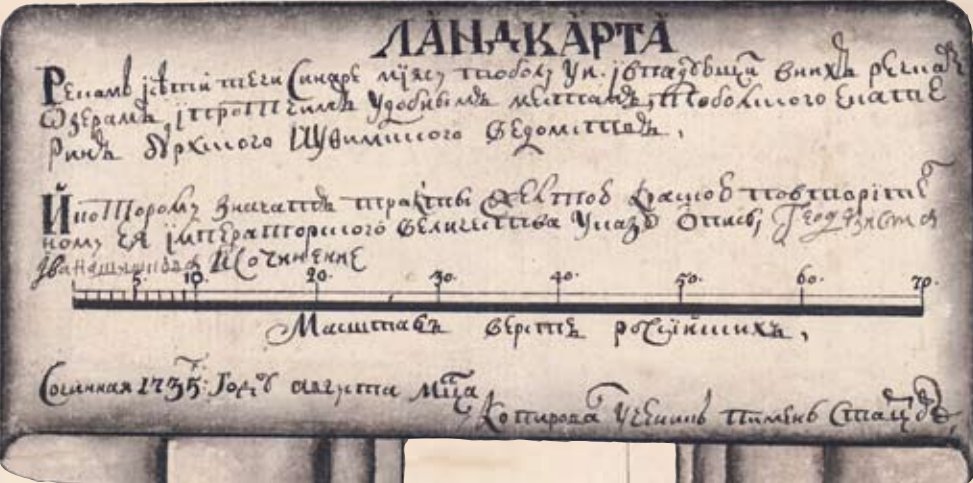 ЛАНДКАРТА
Рекамъ Исети течи Синаре мїясу тоболу Уи. івпадъющи внихъ речкаᴹ
Озерамъ їпротчимъ Удобнымъ местамъ, Тоболского Екате
Ринъ бурхского ИУвимского ведомствъ,
значатъ тракты
ному Ея їмператорского величества Указу Опись, Геодезиста
Ивана Шишкова ИСочинение
5. 10. 20. 30. 40. 50. 60. 70.
Масштабъ верстъ росуїйскихъ,
Сочинная 1735: Году августа мца
Копирова Ученикъ пименъ Старцовъ,